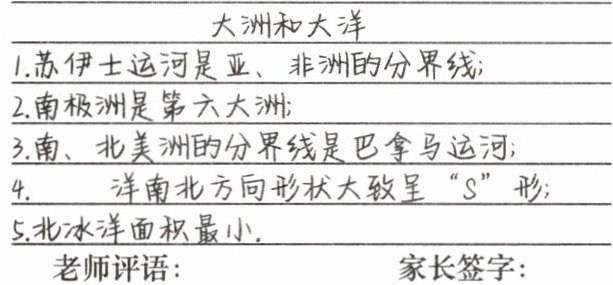 大洲和大洋
1.苏伊士运河是亚、非洲的分界线;
2.南极洲是第六大洲;
3.南、北美洲的分界线是巴拿马运河;
4. 洋南北方向形状大致呈“S”形;
5.北冰洋面积最小.
老师评语: 家长签字: